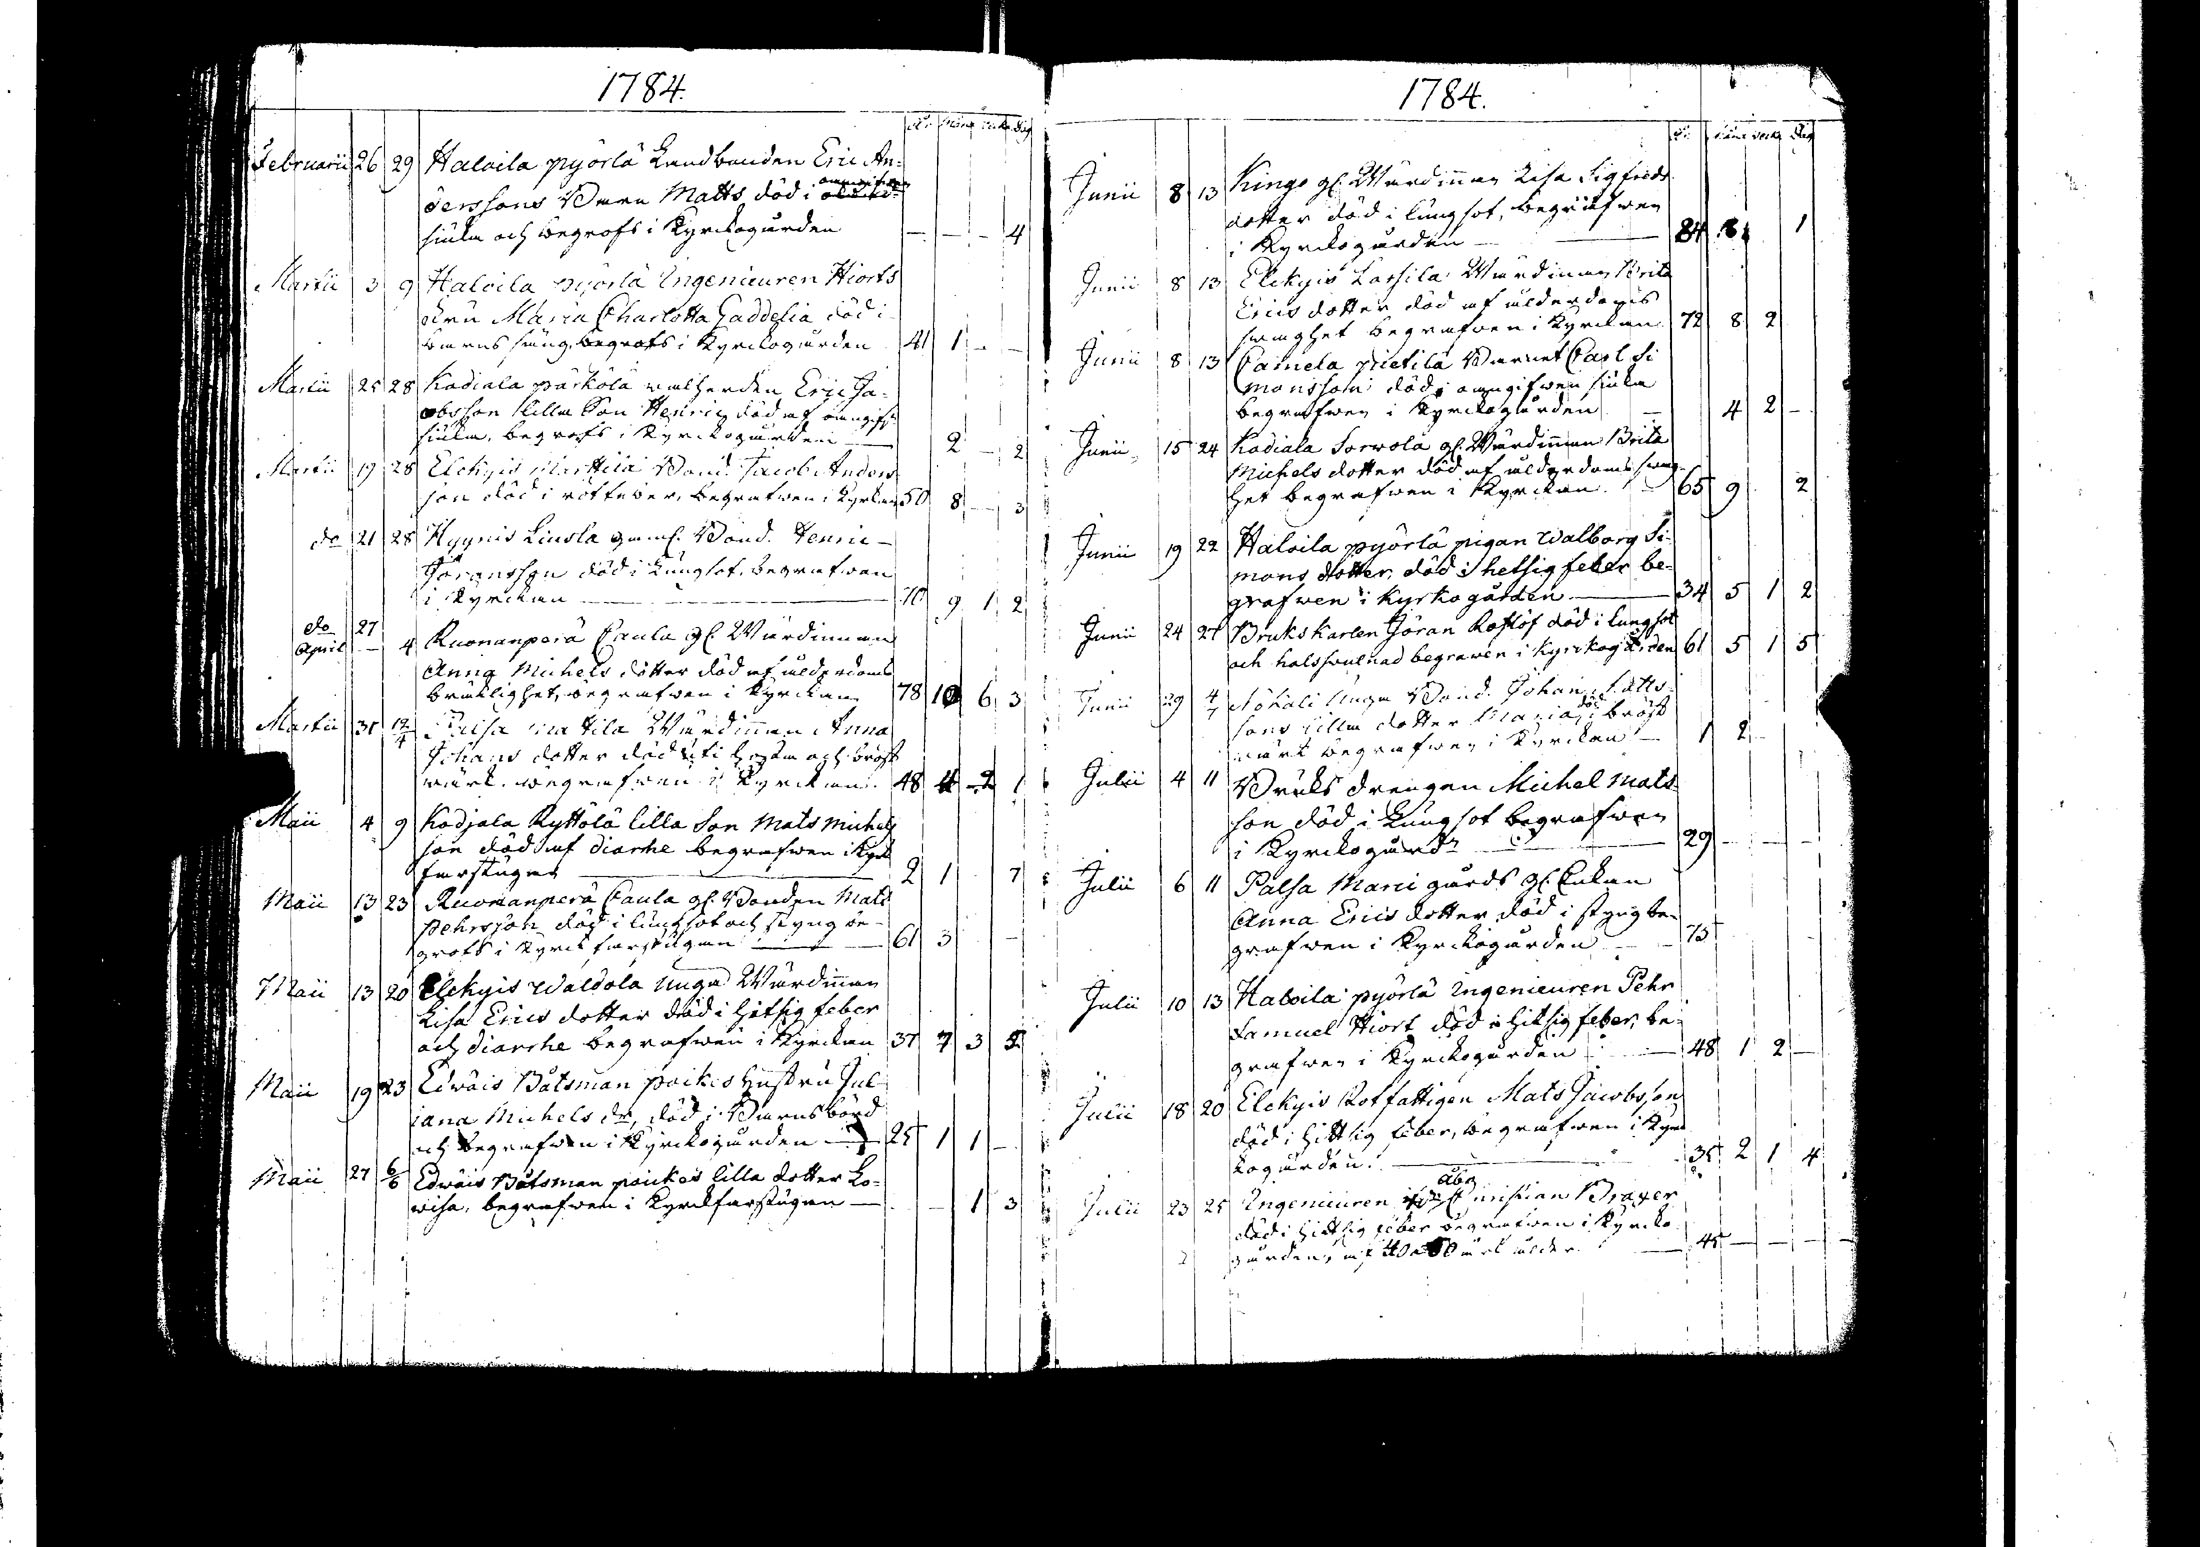 1784.
År Mån Veck Dag
Februarii 26 29 Haloila pyörlä Landbonden Eric An-
derssons Barn Matts död i oangifwen
siuka och begrofs i Kyrckogården — — — 4
Martii 3 9 Haloila pyörlä Ingenieuren Hiorts
Fru Maria Charlotta Gaddelia död i
barnsäng, begrofs i Kyrckogården 41 1 - -
Martii 25 28 Kadiala pärkölä Eric Ja-
cobsson lilla Son Henric död af oangifw
siuka, begrofs i Kyrckogården — 2 — 2
Martii 19 28 Elckyis Marttila Bond. Jacob Anders
son död i rötfeber, begrafwen i Kyrckan 50 8 — 3
do 21 28 Hyynis Liusla gaml. Bond. Henric
Göransson död i Lungsot, begrafwen
i Kyrckan — 70 9 1 2
do 27
April — 4 Ruonanperä Caula gl. Wärdinnan
Anna Michels dotter död af ålderdoms
bräcklighet, begrafwen i Kyrckan 78 10 6 3
Martii 31 12/4 Palsa Mattila Wärdinnan Anna
Johans dotter död uti Hosta och bröst
wärk. begrafwen i Kyrckan. 48 4 2 1
Maii 4 9 Kadjala Kyttölä lilla Son Mats Michels
son död af diarrhe begrafwen i Kyrk
farstugan — 2 1 7
Maii 13 23 Ruonanperä Caula gl. Bonden Mats
Pehrsson död i lungsot och styng be-
grofs i Kyrckfarstugan — 61 3 -
Maii 13 20 Elckyis Waldola Unga Wärdinnan
Lisa Erics dotter död i hetsig feber
och diarrhe begrafwen i Kyrckan 37 7 3 5
Maii 19 23 Edwäis Båtsman poikes Hustru Jul-
iana Michels dr, död i Barnsbörd
och begrafwen i Kyrckogården — 25 1 1 -
Maii 27 6/6 Edwäis Båtsman poikes lilla dotter Lo-
wisa, begrafwen i Kyrckfarstugan — - 1 3
1784.
År Mån Veck Dag
Junii 8 13 Kingo gl. Wärdinnan Lisa Sigfrids
dotter död i lungsot, begrafwen
i Kyrckogården — 84 8 1
Junii 8 13 Elckyis Lassila Wärdinnan Brita
Erics dotter död af ålderdoms
swaghet begrafwen i Kyrckan 72 8 2
Junii 8 13 Camela pietilä Barnet Carl Si
monsson död i oangifwen siuka
begrafwen i Kyrckogården — 4 2 -
Junii 15 24 Kadiala Sorwola gl. Wärdinnan Brita
Michels dotter död af ålderdoms swag-
het begrafwen i Kyrckan. — 65 9 2
Junii 19 22 Haloila pyörlä pigan Walborg Si-
mons dotter, död i hetsig feber be-
grafwen i Kyrkogården — 34 5 1 2
Junii 24 27 Brukskarlen Jöran Roslöf död i lungsot
och halsswulnad begrawen i Kyrckogården 61 5 1 5
Junii 29 4/7 Unga Bond. Johan Matts
sons lilla dotter Maria död i bröst
wärk begrafwen i Kyrckan — 1 2 -
Julii 4 11 Bruks drengen Michel Mats
son död i Lungsot begrafwen
i Kyrckogårdn — 29 - - -
Julii 6 11 Palsa Marci gårds gl. Enkan
Anna Erics dotter död i styng be-
grafwen i Kyrckogården — 75
Julii 10 13 Haloila pyörlä Ingenieuren Pehr
Samuel Hiort död i hitsig feber, be-
grafwen i Kyrckogården — 48 1 2 -
Julii 18 20 Elckyis Rotfattigen Mats Jacobsson
död i hittsig feber, begrafwen i Kyrc
kogården. — 35 2 1 4
Julii 23 25 Ingenieuren Christian Brager
död i hittsig feber begrafwen i Kyrcko
gården, af 40 a 50 års ålder. — 45 - - -